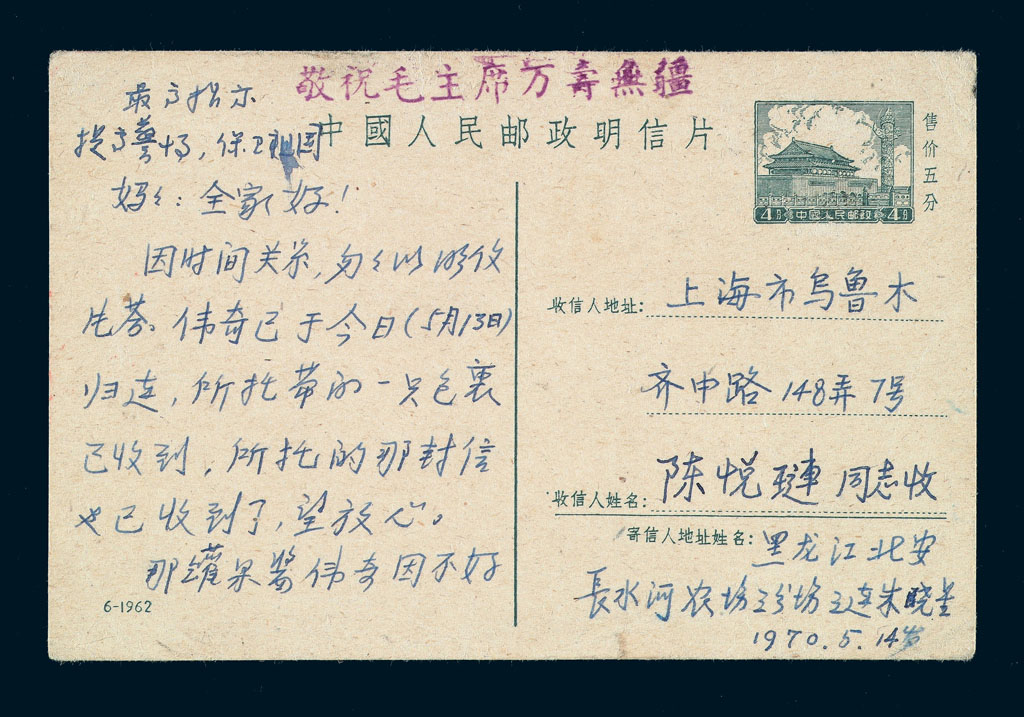 敬祝毛主席万壽無疆
中國人民邮政明信片
售价五分
4分 中國人民邮政 4分
最高指示
提高警惕，保卫祖国
妈々：全家好！
因时间关系，匆々以
伟奇已于今日（5月13日）
归连，所托带的一只包裹
已收到，所托的那封信
也已收到了，望放心。
那罐果酱伟奇因不好
6-1962
收信人地址：上海市乌鲁木
齐中路148弄7号
收信人姓名：陈悦璉同志收
寄信人地址姓名：黑龙江北安
長水河农场三分场三连朱晓星
1970.5.14